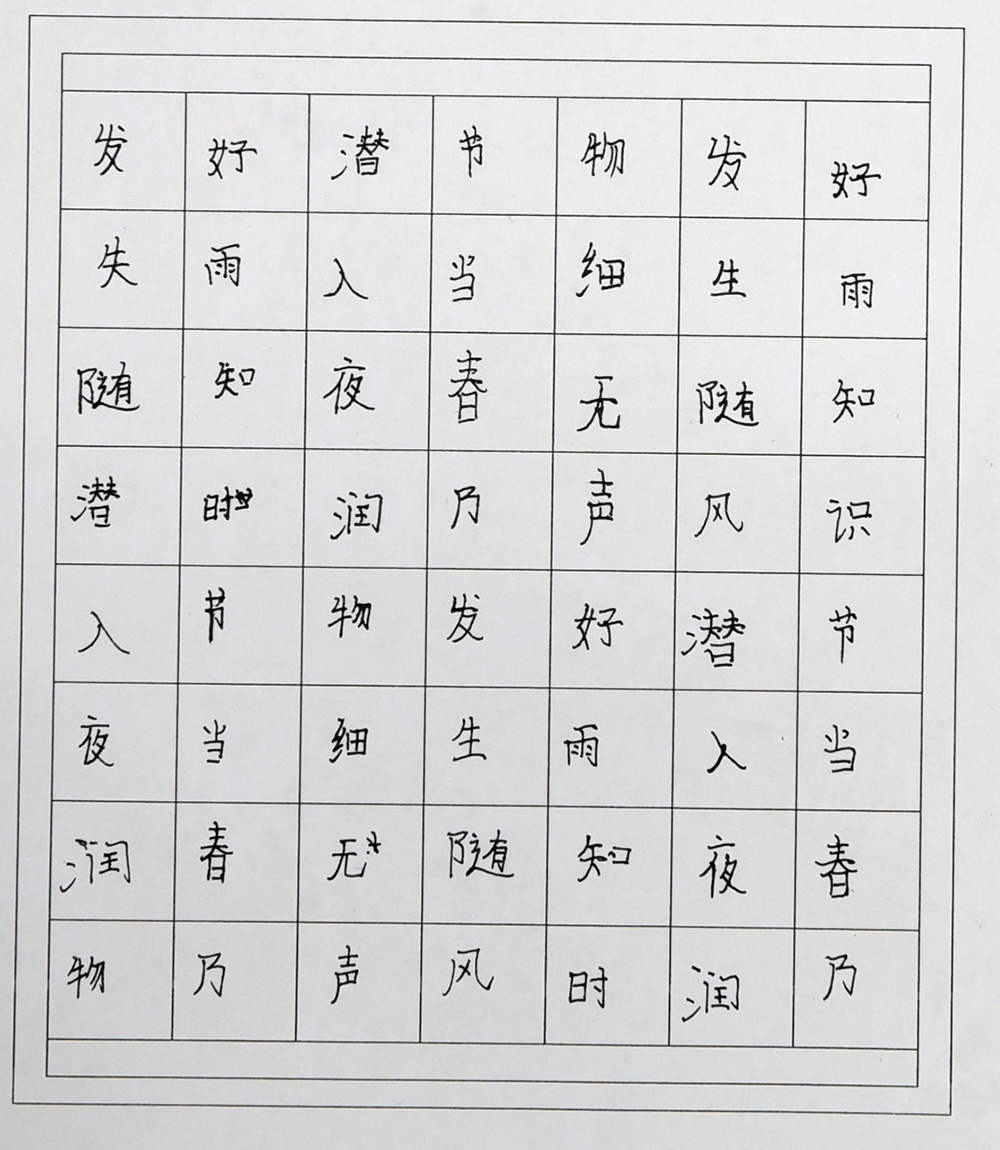 好雨知识节当春乃
发生随风潜入夜润
物细无声好雨知时
节当春乃发生随风
潜入夜润物细无声
好雨知时节当春乃
发失随潜入夜润物